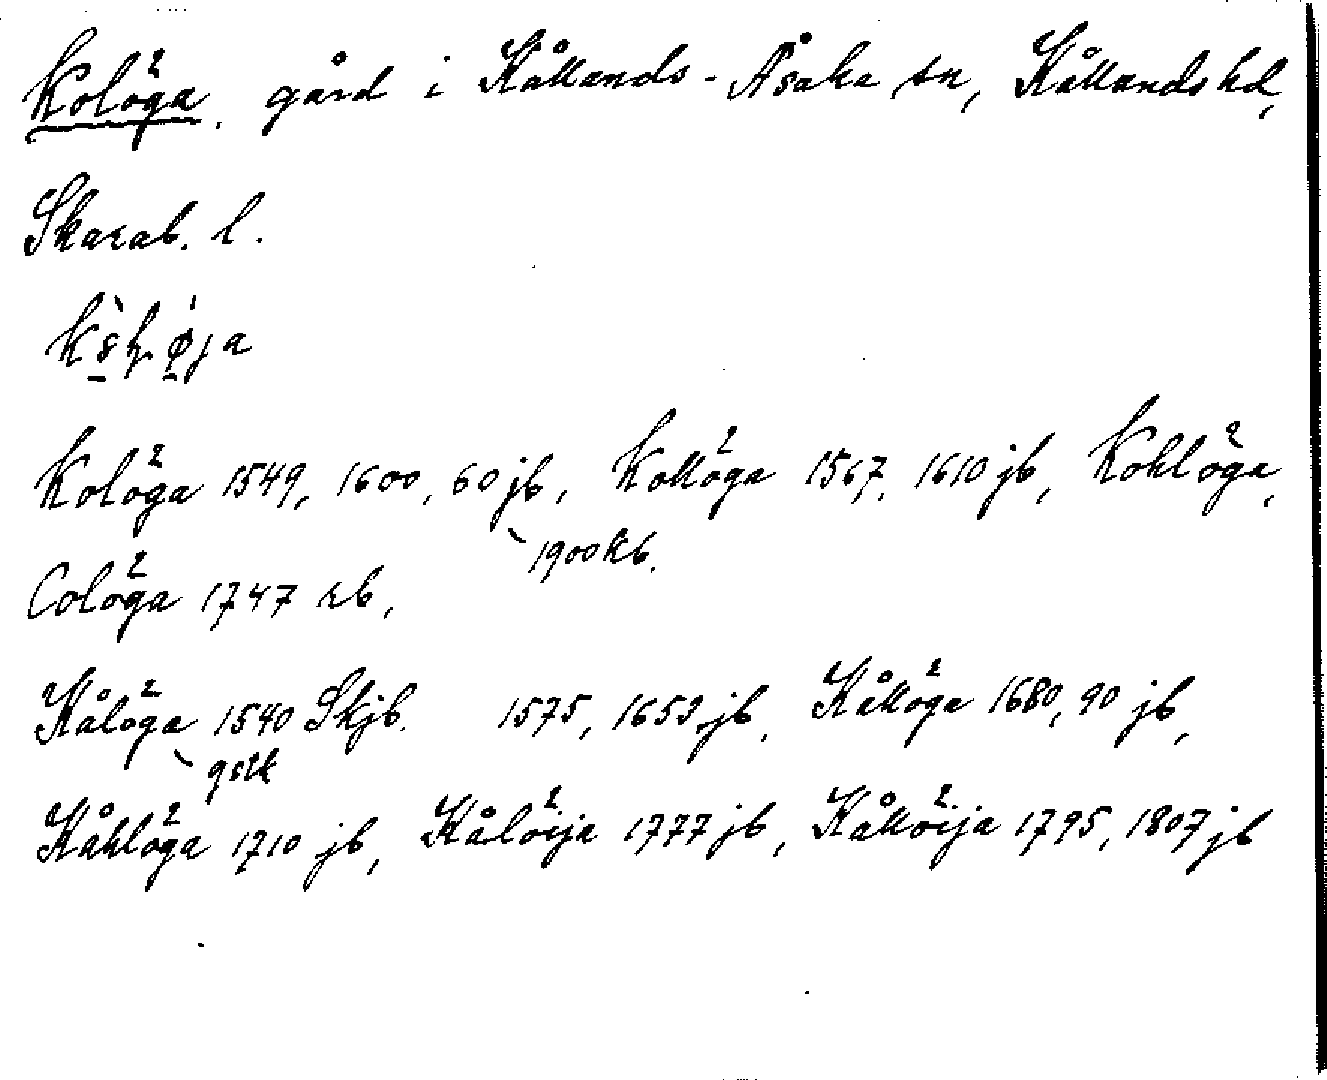 Kolöga, gård i Kållands-Åsaka sn, Kållands hd,
Skarab. l.
Kolöga 1549, 1600, 60 jb, Kollöga 1567, 1610 jb, Kohlöga,
1900 kb.
Colöga 1747 rb,
Kålöga 1540 Skjb. 1575, 1659 jb, Kållöga 1680, 90 jb,
Kåhlöga 1710 jb, Kålöija 1777 jb, Kållöija 1795, 1807 jb